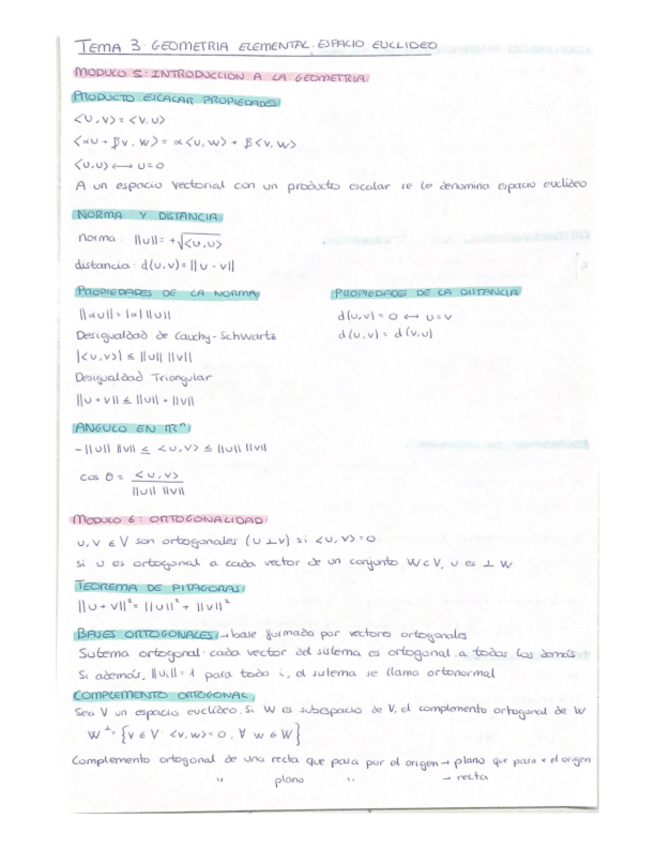 TEMA 3: GEOMETRIA ELEMENTAL. ESPACIO EUCLIDEO
MODULO 5: INTRODUCCION A LA GEOMETRIA
PRODUCTO ESCALAR PROPIEDADES
<u,v> = <v,u>
<αu + βv, w> = α<u,w> + β<v,w>
<u,u> ⟷ u=0
A un espacio vectorial con un producto escalar se le denomina espacio euclídeo
NORMA Y DISTANCIA
norma: ||u|| = +√<u,u>
distancia: d(u,v) = ||u - v||
PROPIEDADES DE LA NORMA
||αu|| = |α| ||u||
Desigualdad de Cauchy-Schwartz
|<u,v>| ≤ ||u|| ||v||
Desigualdad Triangular
||u + v|| ≤ ||u|| + ||v||
PROPIEDADES DE LA DISTANCIA
d(u,v) = 0 ⟷ u=v
d(u,v) = d(v,u)
ANGULO EN ℝⁿ
-||u|| ||v|| ≤ <u,v> ≤ ||u|| ||v||
cos θ = <u,v> / ||u|| ||v||
MODULO 6: ORTOGONALIDAD
u,v ∈ V son ortogonales (u ⊥ v) si <u,v> = 0
si u es ortogonal a cada vector de un conjunto W⊂V, u es ⊥ W
TEOREMA DE PITAGORAS
||u + v||² = ||u||² + ||v||²
BASES ORTOGONALES → base formada por vectores ortogonales
Sistema ortogonal: cada vector del sistema es ortogonal a todos los demás
Si además, ||uᵢ|| = 1 para todo i, el sistema se llama ortonormal
COMPLEMENTO ORTOGONAL
Sea V un espacio euclídeo. Si W es subespacio de V, el complemento ortogonal de W
W^⊥ = {v ∈ V: <v,w> = 0, ∀ w ∈ W}
Complemento ortogonal de una recta que pasa por el origen → plano que pasa x el origen
" plano " → recta